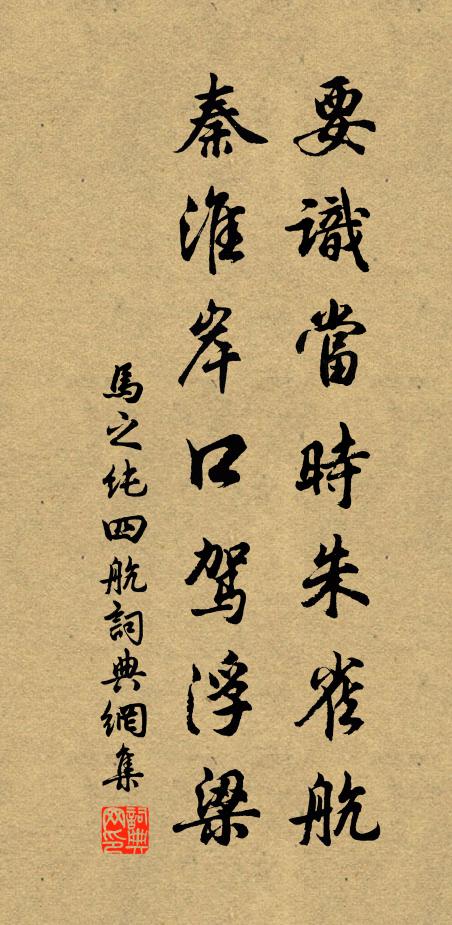 要識當時朱雀航
秦淮岸口駕浮梁
馬之純四航詞典網集
詞典网印